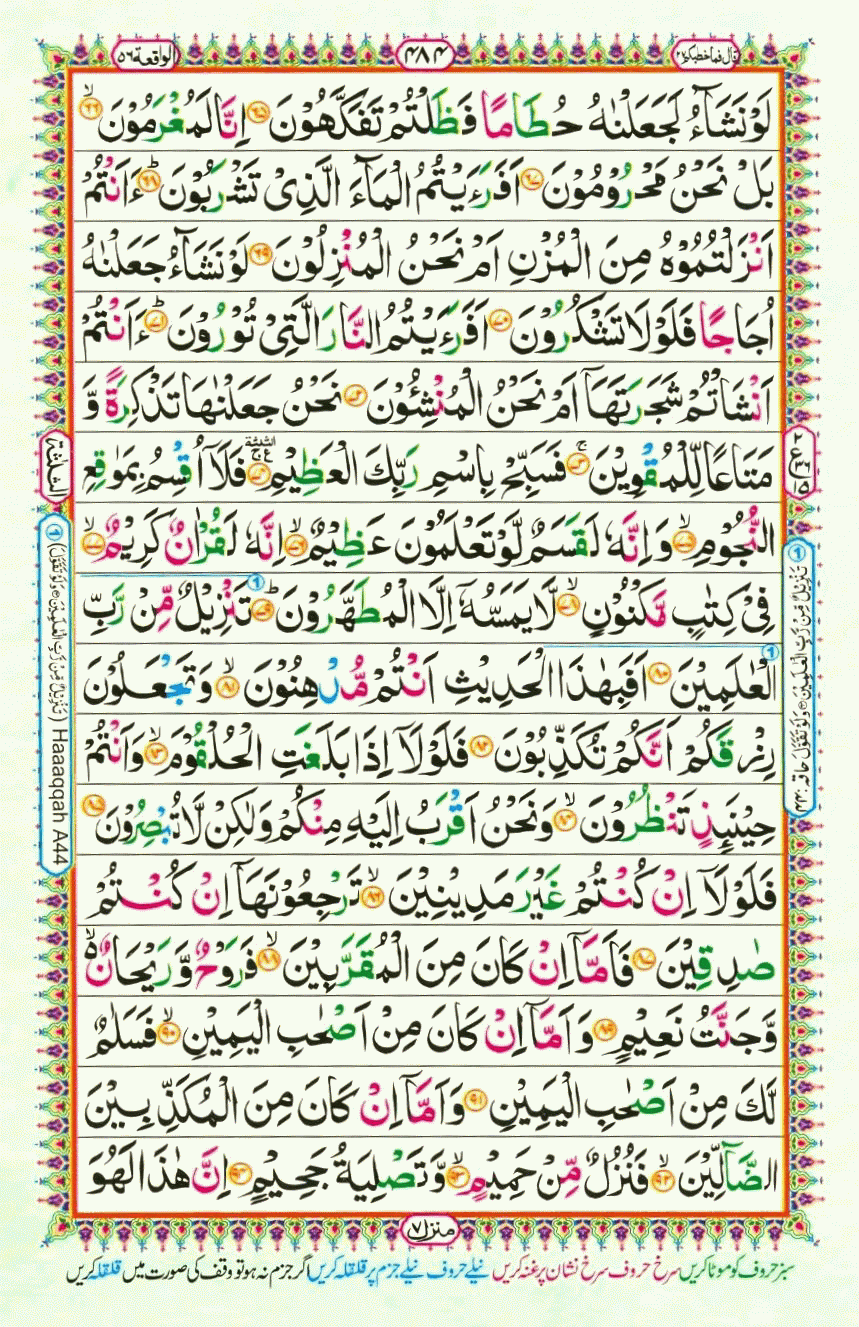 قال فما خطبكم ٢٧
٤٨٤
الواقعة ٥٦
لَوْ نَشَآءُ لَجَعَلْنٰهُ حُطَامًا فَظَلْتُمْ تَفَكَّهُوْنَ ﴿۶۵﴾ اِنَّا لَمُغْرَمُوْنَ ﴿۶۶﴾
بَلْ نَحْنُ مَحْرُوْمُوْنَ ﴿۶۷﴾ اَفَرَءَيْتُمُ الْمَآءَ الَّذِىْ تَشْرَبُوْنَ ﴿۶۸﴾ ءَاَنْتُمْ
اَنْزَلْتُمُوْهُ مِنَ الْمُزْنِ اَمْ نَحْنُ الْمُنْزِلُوْنَ ﴿۶۹﴾ لَوْ نَشَآءُ جَعَلْنٰهُ
اُجَاجًا فَلَوْلَا تَشْكُرُوْنَ ﴿۷۰﴾ اَفَرَءَيْتُمُ النَّارَ الَّتِىْ تُوْرُوْنَ ﴿۷۱﴾ ءَاَنْتُمْ
اَنْشَاْتُمْ شَجَرَتَهَآ اَمْ نَحْنُ الْمُنْشِـُٔوْنَ ﴿۷۲﴾ نَحْنُ جَعَلْنٰهَا تَذْكِرَةً وَّ
مَتَاعًا لِّلْمُقْوِيْنَ ﴿۷۳﴾ فَسَبِّحْ بِاسْمِ رَبِّكَ الْعَظِيْمِ ﴿۷۴﴾ فَلَآ اُقْسِمُ بِمَوٰقِعِ
النُّجُوْمِ ﴿۷۵﴾ وَاِنَّهٗ لَقَسَمٌ لَّوْ تَعْلَمُوْنَ عَظِيْمٌ ﴿۷۶﴾ اِنَّهٗ لَقُرْاٰنٌ كَرِيْمٌ ﴿۷۷﴾
فِىْ كِتٰبٍ مَّكْنُوْنٍ ﴿۷۸﴾ لَّا يَمَسُّهٗٓ اِلَّا الْمُطَهَّرُوْنَ ﴿۷۹﴾ تَنْزِيْلٌ مِّنْ رَّبِّ
الْعٰلَمِيْنَ ﴿۸۰﴾ اَفَبِهٰذَا الْحَدِيْثِ اَنْتُمْ مُّدْهِنُوْنَ ﴿۸۱﴾ وَتَجْعَلُوْنَ
رِزْقَكُمْ اَنَّكُمْ تُكَذِّبُوْنَ ﴿۸۲﴾ فَلَوْلَآ اِذَا بَلَغَتِ الْحُلْقُوْمَ ﴿۸۳﴾ وَاَنْتُمْ
حِيْنَئِذٍ تَنْظُرُوْنَ ﴿۸۴﴾ وَنَحْنُ اَقْرَبُ اِلَيْهِ مِنْكُمْ وَلٰكِنْ لَّا تُبْصِرُوْنَ ﴿۸۵﴾
فَلَوْلَآ اِنْ كُنْتُمْ غَيْرَ مَدِيْنِيْنَ ﴿۸۶﴾ تَرْجِعُوْنَهَآ اِنْ كُنْتُمْ
صٰدِقِيْنَ ﴿۸۷﴾ فَاَمَّآ اِنْ كَانَ مِنَ الْمُقَرَّبِيْنَ ﴿۸۸﴾ فَرَوْحٌ وَّرَيْحَانٌ
وَّجَنَّتُ نَعِيْمٍ ﴿۸۹﴾ وَاَمَّآ اِنْ كَانَ مِنْ اَصْحٰبِ الْيَمِيْنِ ﴿۹۰﴾ فَسَلٰمٌ
لَّكَ مِنْ اَصْحٰبِ الْيَمِيْنِ ﴿۹۱﴾ وَاَمَّآ اِنْ كَانَ مِنَ الْمُكَذِّبِيْنَ
الضَّآلِّيْنَ ﴿۹۲﴾ فَنُزُلٌ مِّنْ حَمِيْمٍ ﴿۹۳﴾ وَّتَصْلِيَةُ جَحِيْمٍ ﴿۹۴﴾ اِنَّ هٰذَا لَهُوَ
الثلثة
تَنْزِيْلٌ مِّنْ رَّبِّ الْعٰلَمِيْنَ وَلَوْ تَقَوَّلَ حاقہ:۴۴
تَنْزِيْلٌ مِّنْ رَّبِّ الْعٰلَمِيْنَ وَلَوْ تَقَوَّلَ) Haaaqqah A44
منزل ۷
سبز حروف کو موٹا کریں سرخ حروف سرخ نشان پر غنہ کریں نیلے حروف نیلے جزم پر قلقلہ کریں اگر جزم نہ ہو تو وقف کی صورت میں قلقلہ کریں